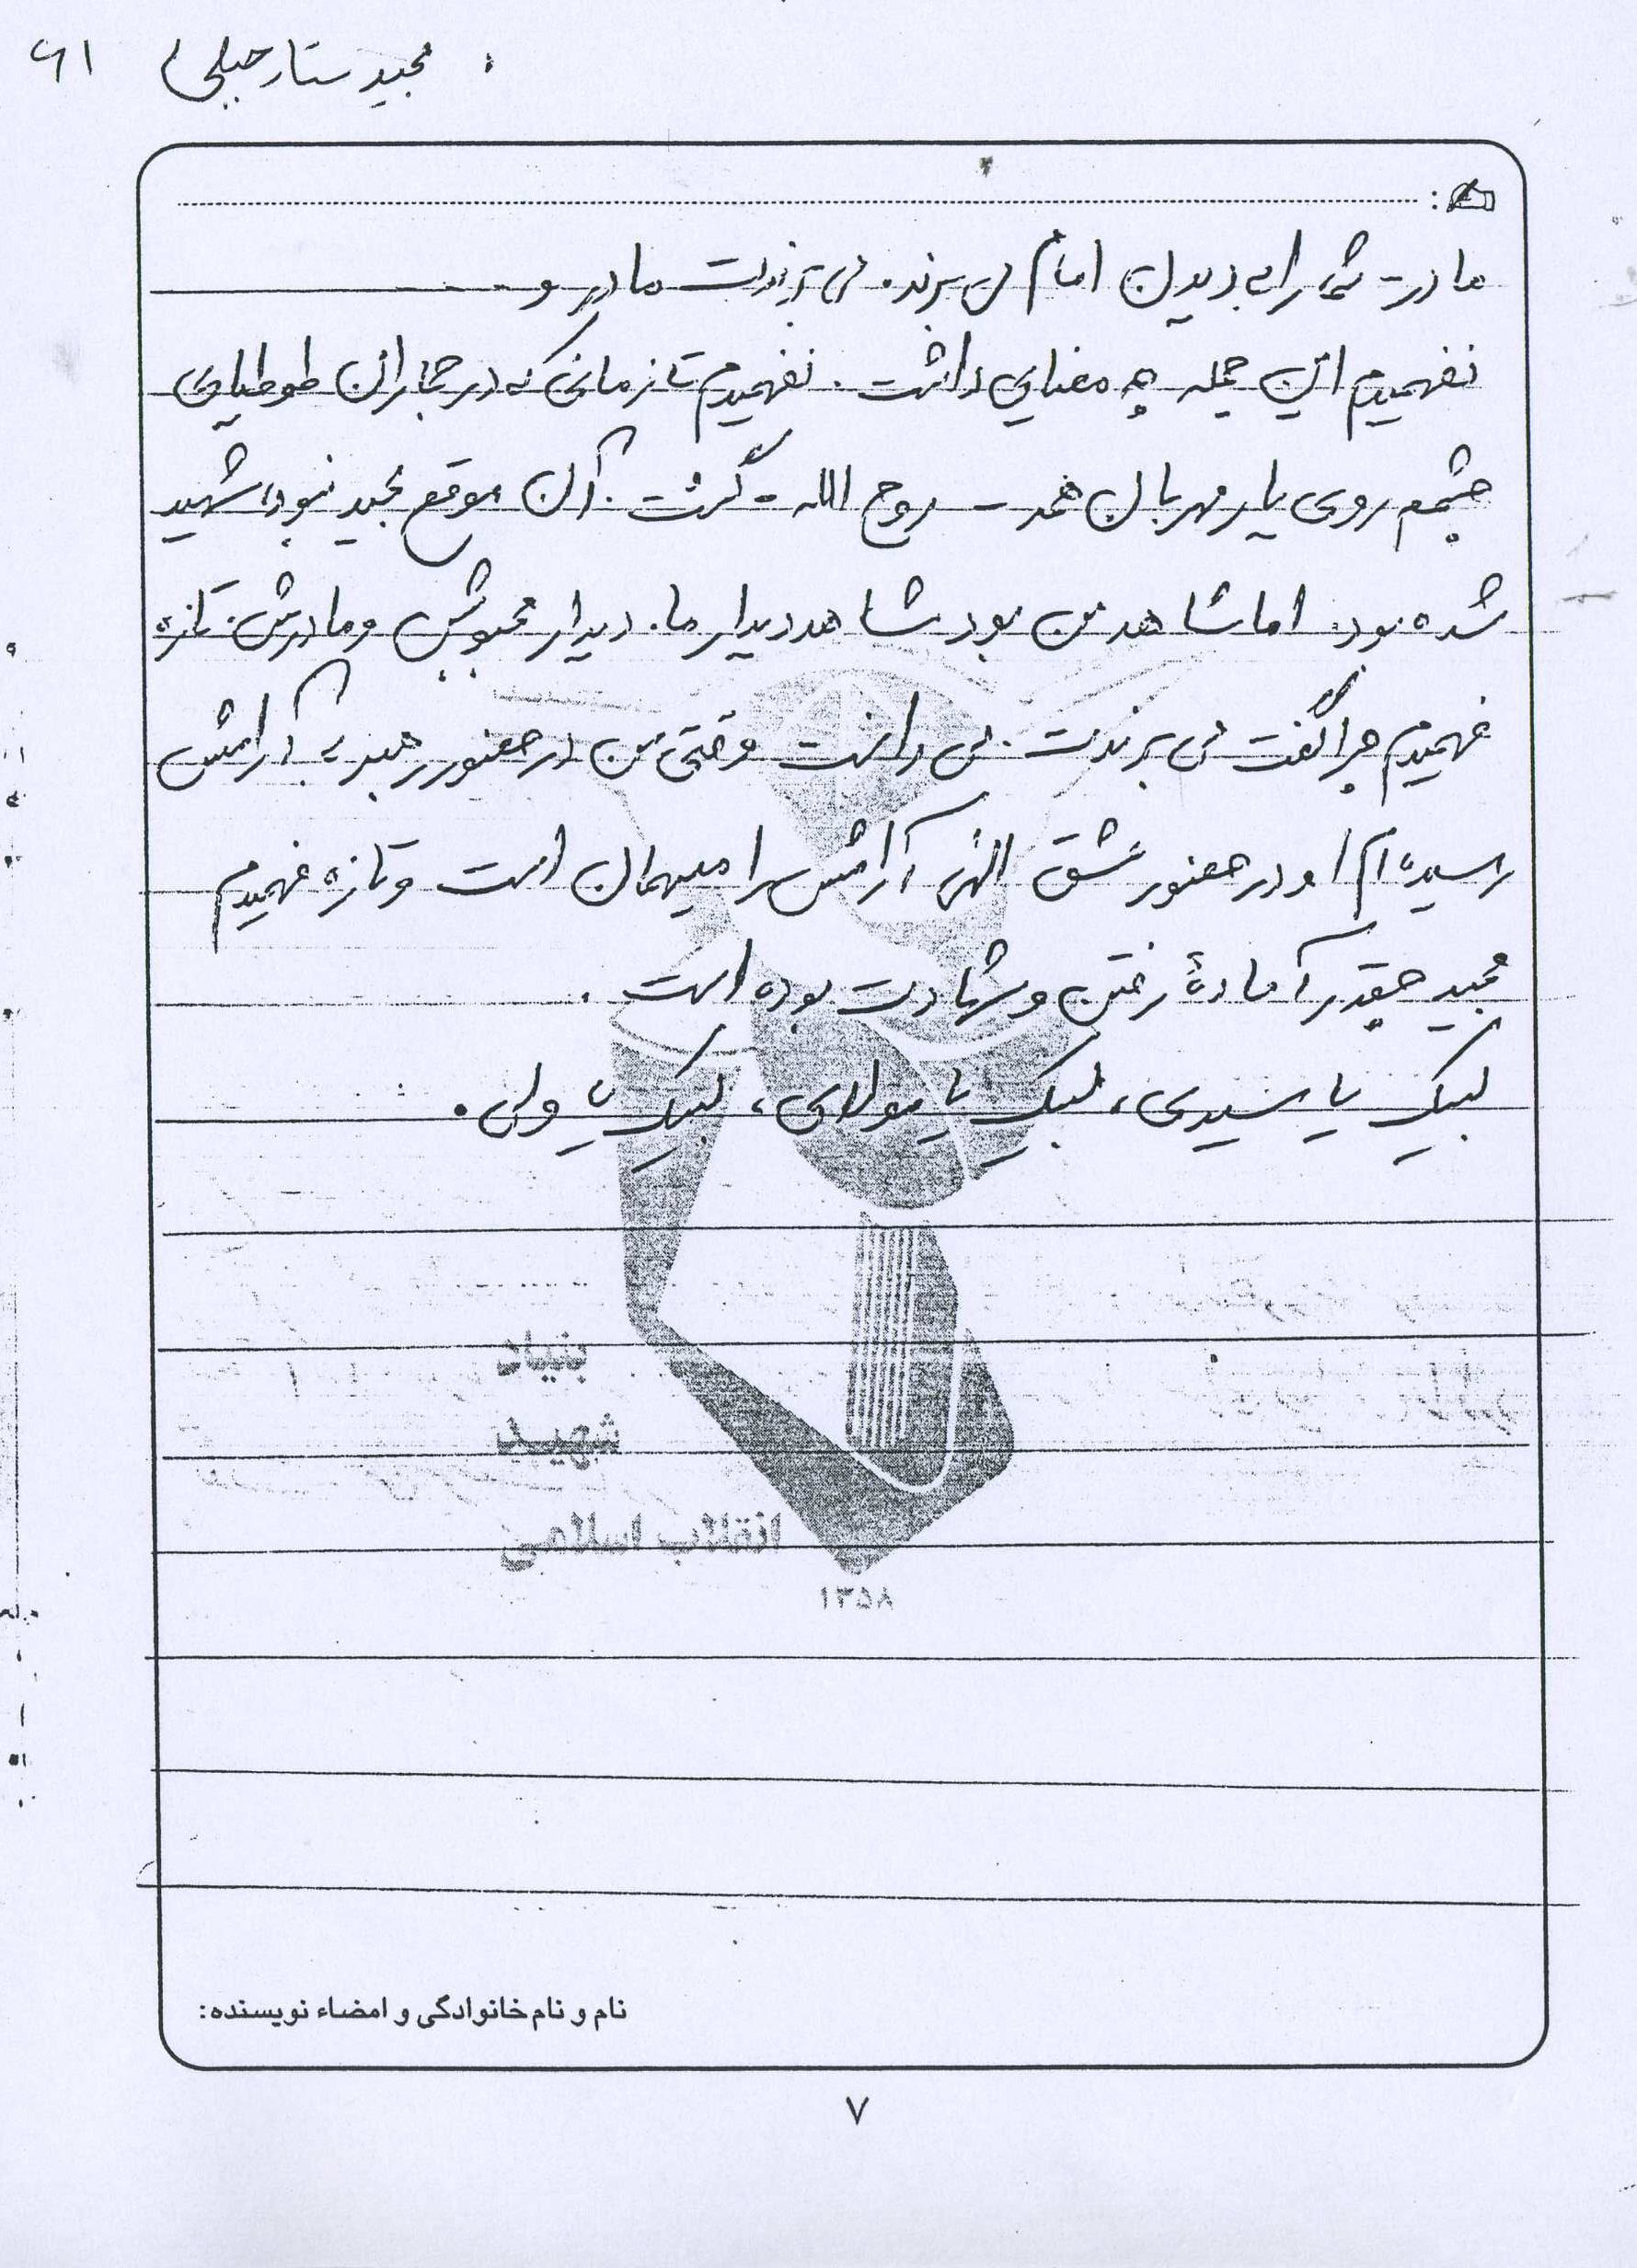 مجید ستار جبلی ۶۱
مادر شما را به دیدن امام می برند. می برندت مادر و
نفهمیدم این جمله چه معنایی داشت. نفهمیدم تا زمانی که در جماران طوطیای
چشمم روی یار مهربان همه - روح الله - گشت. آن موقع مجید نبود، شهید
شده بود. اما شاهد من بود شاهد دیدار ما. دیدار محبوبش و مادرش. تازه
فهمیدم چرا گفت می برندت. می دانست وقتی من در حضور رهبر به آرامش
رسیده ام او در حضور عشق الهی آرامش را میهمان است و تازه فهمیدم
مجید چقدر آمادۀ رفتن و شهادت بوده است.
لبیک یا سیدی، لبیک یا مولای، لبیک یا ولی.
بنیاد
شهید
انقلاب اسلامی
۱۳۵۸
نام و نام خانوادگی و امضاء نویسنده:
۷